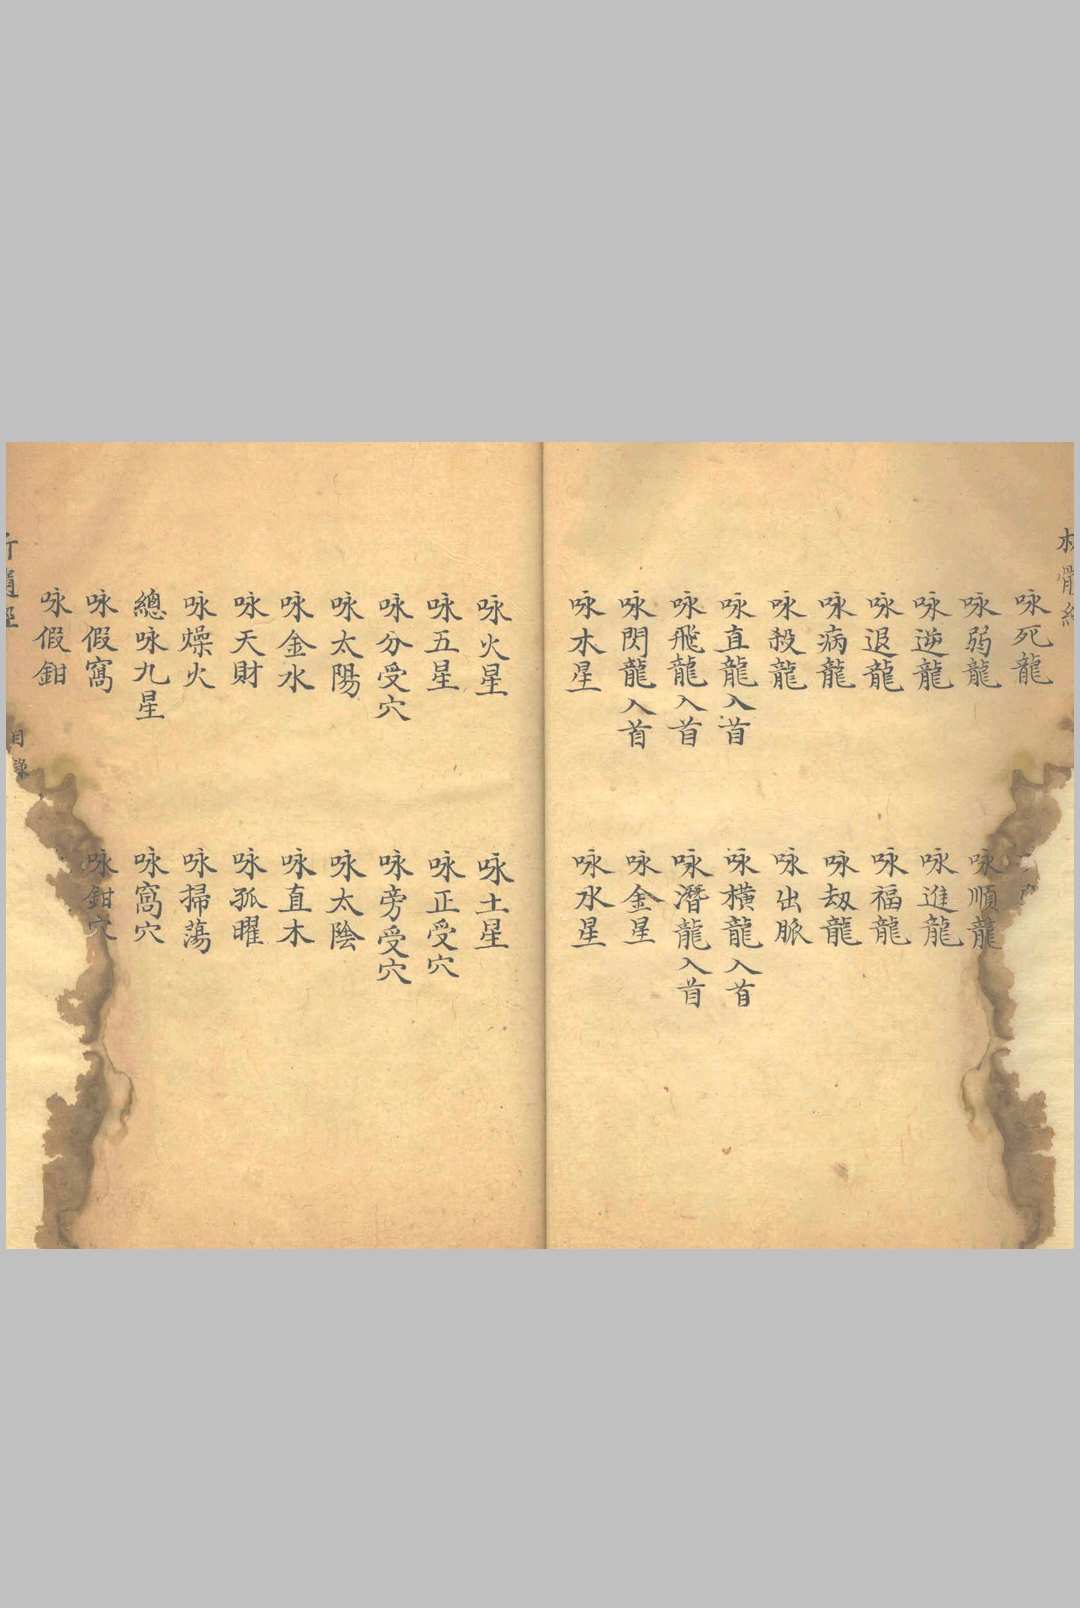 咏死龍
咏弱龍　咏順龍
咏逆龍　咏進龍
咏退龍　咏福龍
咏病龍　咏劫龍
咏殺龍　咏出脈
咏直龍入首　咏橫龍入首
咏飛龍入首　咏潛龍入首
咏閃龍入首　咏金星
咏木星　咏水星
咏火星　咏土星
咏五星　咏正受穴
咏分受穴　咏旁受穴
咏太陽　咏太陰
咏金水　咏直木
咏天財　咏孤曜
咏燥火　咏掃蕩
總咏九星　咏窩穴
咏假窩　咏鉗穴
咏假鉗
目錄